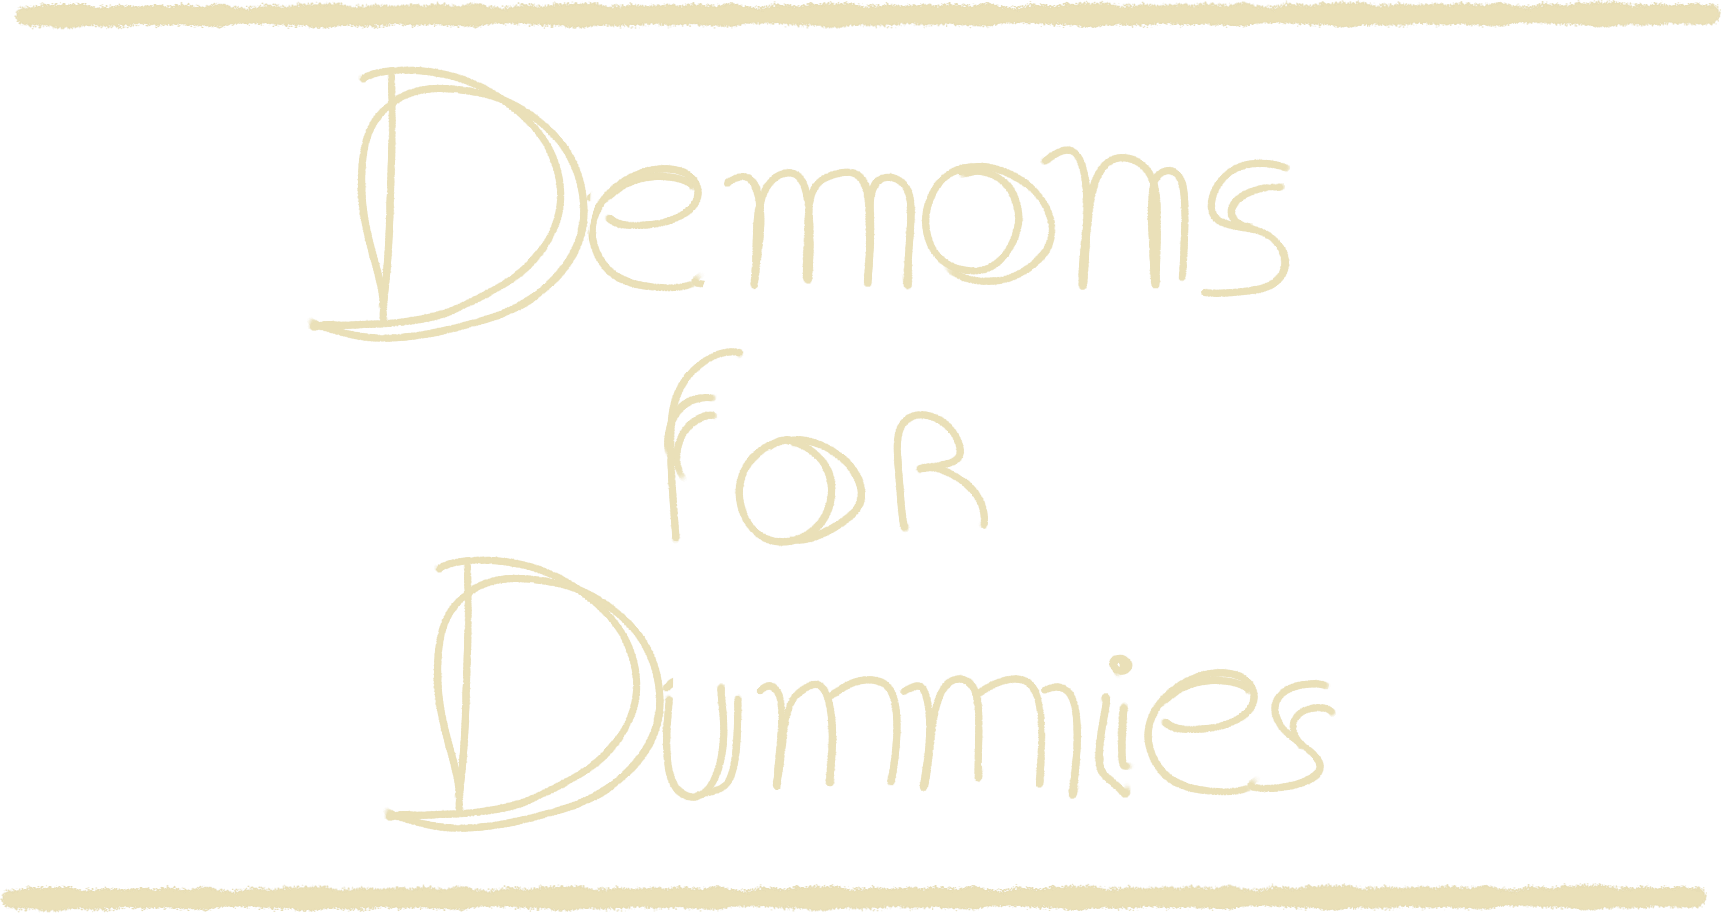 Demons
for
Dummies